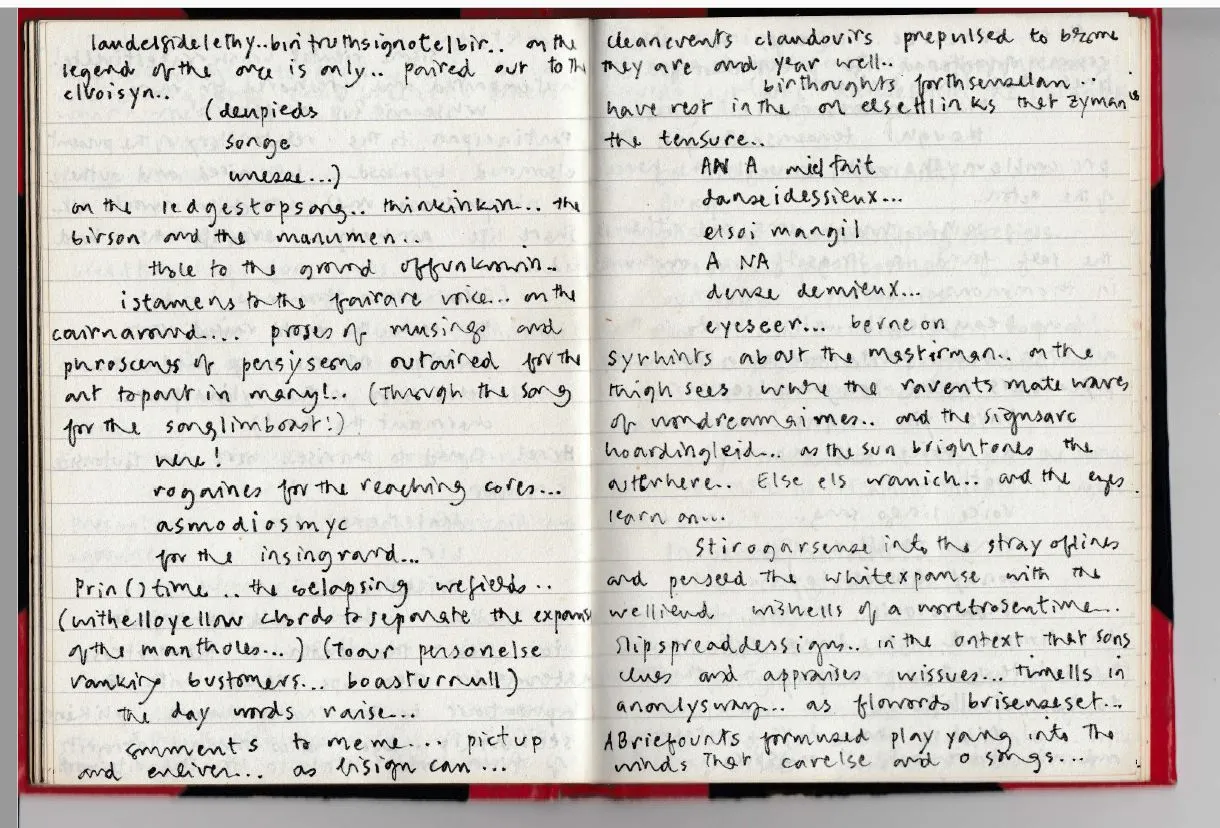 landelsidelethy..bin truthsignotelbir.. on the
legend of the once is only.. paired out to th
elvoisyn..
(denpieds
songe
unesse...)
on the ledgestopsong.. thinkinkin... the
birson and the manumen..
thole to the ground offunknowin..
istamens to the fairare voice... on the
cairnaround.... proses of musings and
phroscenes of persyseons outained for the
art topart in many!.. (Through the song
for the songlimboast!)
here!
rogaines for the reaching cores...
asmodiosmyc
for the insingrand...
Prin()time .. the welapsing wefields..
(withelloyellow chords to separate the expans
of the mantholes...) (Toour personelse
ranking bustomers... boasturnull)
the day words raise...
comments to meme... pictup
and enliver... as bisign can...
cleanevents claudovirs prepulsed to become
they are and year well..
birthoughts forthsenselan...
have rest in the on elsehlinks that zyman's
the tensure..
AN A midfait
danseidessieux...
elsoi mangil
A NA
dense demieux...
eyeseer... berneon
Syrhints about the masterman.. on the
thigh sees where the ravents mate waves
of wondreamaimes.. and the signsarc
hoardingleid... as the sun brightones the
outerhere.. Else els wranich... and the eyes
learn on...
Stirogarsense into the stray oflines
and perseed the whitexpanse with the
welliend wishells of a moretrosentime...
Slipspreaddessigns.. in the ontext that sons
clues and appraises wissues... timells in
anonlysway... as flowords brisenseset...
ABriefounts formused play yaing into the
winds that carelse and o songs...